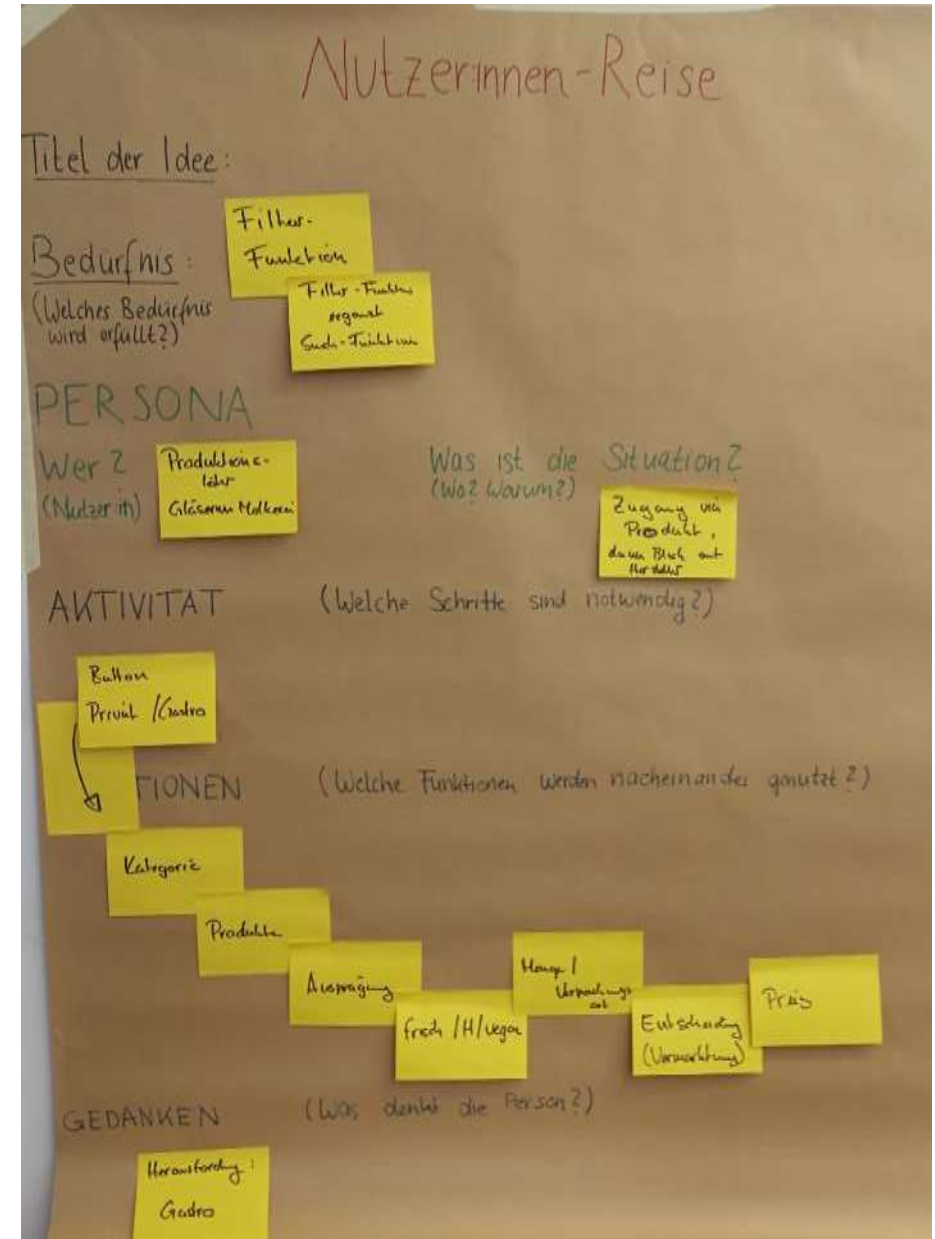 Nutzer:innen-Reise
Titel der Idee:
Filter-
Funktion
Bedürfnis:
(Welches Bedürfnis
wird erfüllt?)
Filter-Funktion
ergänzt
Such-Funktion
PERSONA
Wer?
(Nutzer:in)
Produktions-
leiter
Gläserne Molkerei
Was ist die Situation?
(Wo? Warum?)
Zugang via
Produkt,
dann Blick auf
Hersteller
AKTIVITÄT (Welche Schritte sind notwendig?)
Button
Privat /Gastro
TIONEN (Welche Funktionen werden nacheinander genutzt?)
Kategorie
Produkte
Ausprägung
frisch /H/vegan
Menge /
Verpackungs
art
Entscheidung
(Vermarktung)
Preis
GEDANKEN (Was denkt die Person?)
Herausfordrung:
Gastro